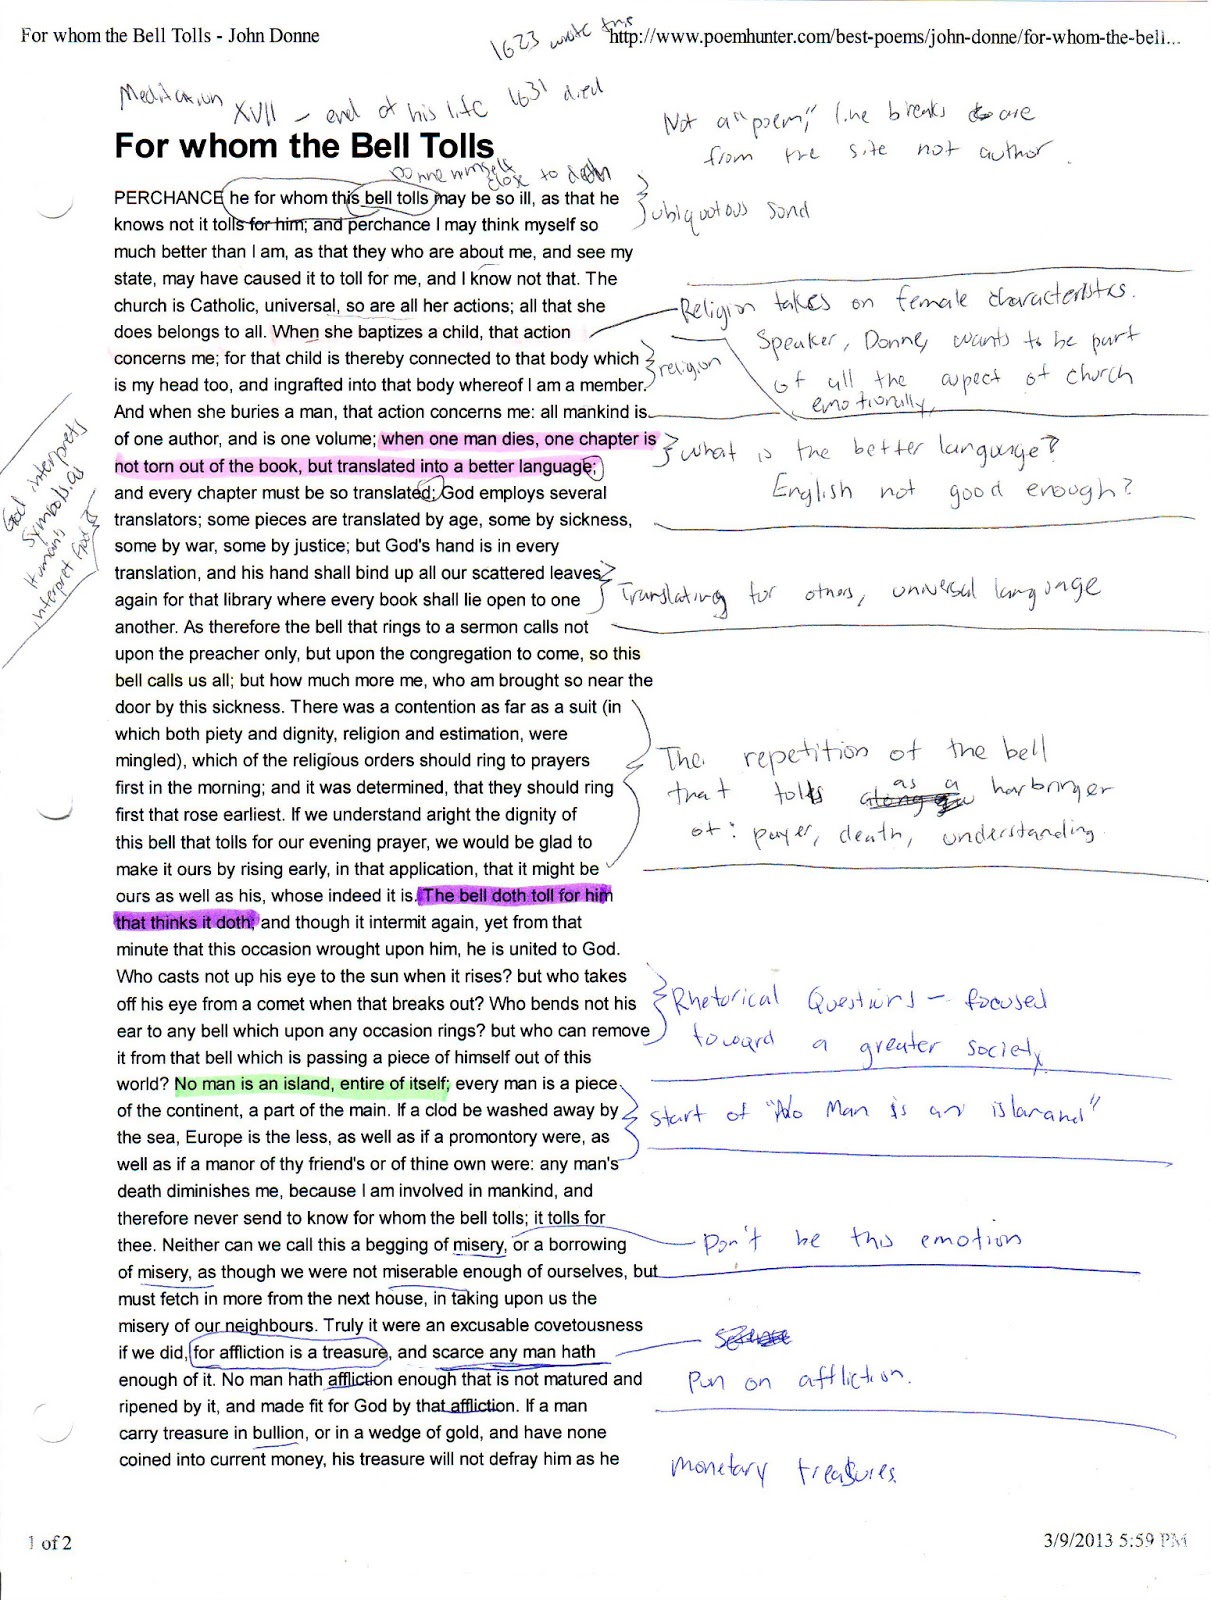 For whom the Bell Tolls - John Donne
1623 wrote this
http://www.poemhunter.com/best-poems/john-donne/for-whom-the-bell...
Meditation XVII - end of his life 1631 died
Not a "poem," line breaks are
from the site not author.
For whom the Bell Tolls
Donne himself
close to death
PERCHANCE he for whom this bell tolls may be so ill, as that he
knows not it tolls for him; and perchance I may think myself so
much better than I am, as that they who are about me, and see my
state, may have caused it to toll for me, and I know not that. The
church is Catholic, universal, so are all her actions; all that she
does belongs to all. When she baptizes a child, that action
concerns me; for that child is thereby connected to that body which
is my head too, and ingrafted into that body whereof I am a member.
And when she buries a man, that action concerns me: all mankind is
of one author, and is one volume; when one man dies, one chapter is
not torn out of the book, but translated into a better language;
and every chapter must be so translated; God employs several
translators; some pieces are translated by age, some by sickness,
some by war, some by justice; but God's hand is in every
translation, and his hand shall bind up all our scattered leaves
again for that library where every book shall lie open to one
another. As therefore the bell that rings to a sermon calls not
upon the preacher only, but upon the congregation to come, so this
bell calls us all; but how much more me, who am brought so near the
door by this sickness. There was a contention as far as a suit (in
which both piety and dignity, religion and estimation, were
mingled), which of the religious orders should ring to prayers
first in the morning; and it was determined, that they should ring
first that rose earliest. If we understand aright the dignity of
this bell that tolls for our evening prayer, we would be glad to
make it ours by rising early, in that application, that it might be
ours as well as his, whose indeed it is. The bell doth toll for him
that thinks it doth; and though it intermit again, yet from that
minute that this occasion wrought upon him, he is united to God.
Who casts not up his eye to the sun when it rises? but who takes
off his eye from a comet when that breaks out? Who bends not his
ear to any bell which upon any occasion rings? but who can remove
it from that bell which is passing a piece of himself out of this
world? No man is an island, entire of itself; every man is a piece
of the continent, a part of the main. If a clod be washed away by
the sea, Europe is the less, as well as if a promontory were, as
well as if a manor of thy friend's or of thine own were: any man's
death diminishes me, because I am involved in mankind, and
therefore never send to know for whom the bell tolls; it tolls for
thee. Neither can we call this a begging of misery, or a borrowing
of misery, as though we were not miserable enough of ourselves, but
must fetch in more from the next house, in taking upon us the
misery of our neighbours. Truly it were an excusable covetousness
if we did, for affliction is a treasure, and scarce any man hath
enough of it. No man hath affliction enough that is not matured and
ripened by it, and made fit for God by that affliction. If a man
carry treasure in bullion, or in a wedge of gold, and have none
coined into current money, his treasure will not defray him as he
ubiquotous sond
Religion takes on female characteristics.
Speaker, Donne, wants to be part
of all the aspect of church
emotionally,
religion
what is the better language?
English not good enough?
God interprets
symbols as
Humans
interpret God
Translating for others, universal language
The repetition of the bell
that tolls as a harbinger
of: payer, death, understanding.
Rhetorical Questions - focused
toward a greater society
start of "No Man is an islanand"
Don't be this emotion
Pun on affliction.
monetary treasures.
1 of 2
3/9/2013 5:59 PM